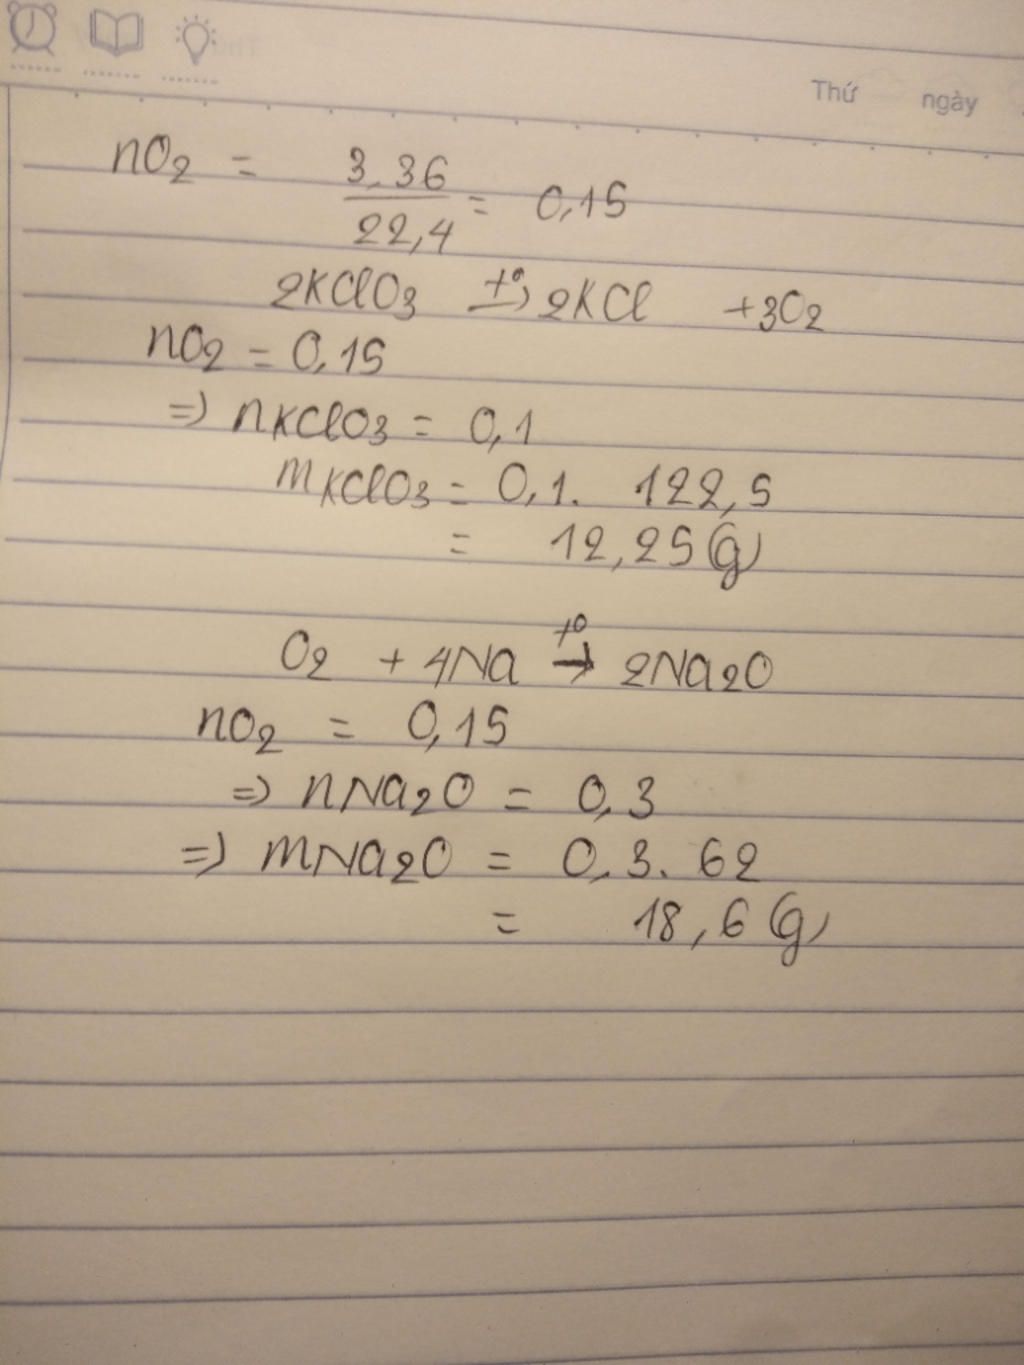 Thứ ngày
nO2 = 3,36 / 22,4 = 0,15
2KClO3 t° → 2KCl + 3O2
nO2 = 0,15
=> nKClO3 = 0,1
mKClO3 = 0,1. 122,5
= 12,25(g)
O2 + 4Na t° → 2Na2O
nO2 = 0,15
=> nNa2O = 0,3
=> mNa2O = 0,3. 62
= 18,6(g)